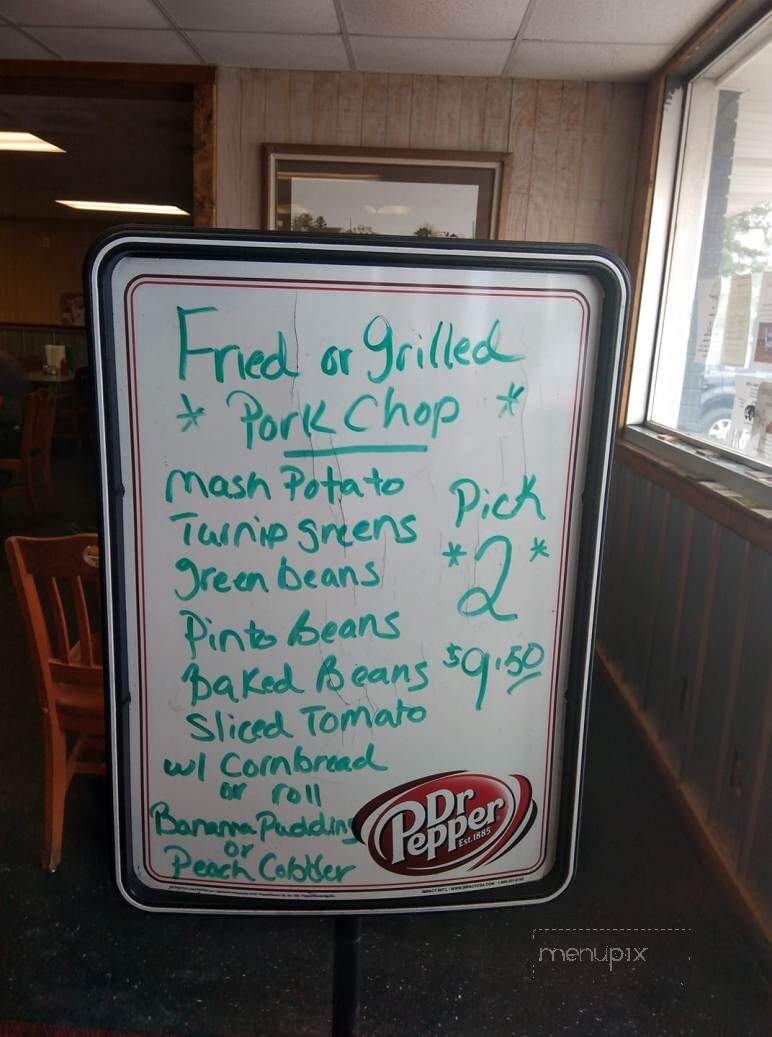 Fried or Grilled
* Pork Chop *
Mash Potato
Turnip greens
green beans
Pinto beans
Baked Beans
Sliced Tomato
w/ Cornbread
or roll
Banana Pudding
or
Peach Cobbler
Pick
* 2 *
$9.50
Dr
Pepper
Est. 1885
menupix